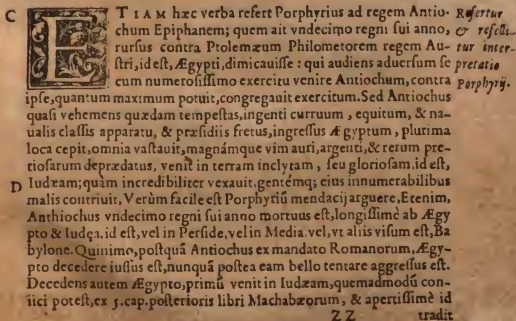 C
ETIAM hæc verba refert Porphyrius ad regem Antio-
chum Epiphanem; quem ait vndecimo regni sui anno,
rursus contra Ptolemæum Philometorem regem Au-
stri, id est, Ægypti, dimicauisse: qui audiens aduersum se
cum numerosissimo exercitu venire Antiochum, contra
ipse, quantum maximum potuit, congregauit exercitum. Sed Antiochus
quasi vehemens quædam tempestas, ingenti curruum, equitum, & na-
ualis classis apparatu, & præsidiis fretus, ingressus Ægyptum, plurima
loca cepit, omnia vastauit, magnámque vim auri, argenti, & rerum pre-
tiosarum deprædatus, venit in terram inclytam, seu gloriosam, id est,
D
Iudæam; quàm incredibiliter vexauit, gentémq; eius innumerabilibus
malis contriuit, Verùm facile est Porphyriũ mendacij arguere, Etenim,
Anthiochus vndecimo regni sui anno mortuus est, longissimè ab Ægy
pto & Iudęa, id est, vel in Perside, vel in Media, vel, vt aliis visum est, Ba
bylone. Quinimo, postquã Antiochus ex mandato Romanorum, Ægy-
pto decedere iussus est, nunquã postea eam bello tentare aggressus est.
Decedens autem Ægypto, primũ venit in Iudæam, quemadmodũ con-
iici potest, ex 5. cap. posterioris libri Machabæorum, & apertissimè id
ZZ tradit
Refertur
& refelli-
tur inter-
pretatio
Porphyrij.